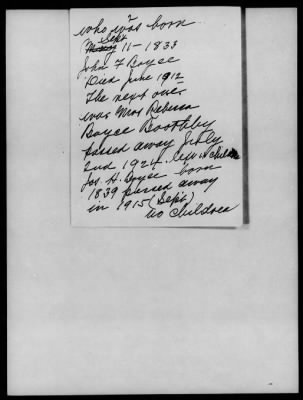 who was born
Sept
11 - 1833
John F Boyce
Died June 1912
The next over
was Mrs Rebecca
Boyce Boothby
passed away July
2nd 1924. left 4 children
Jos. H. Boyce born
1839 passed away
in 1915 (Sept)
no children